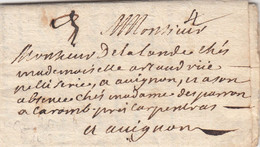 3 Monsieur 4
Monsieur de la lande chés
mademoiselle artaud rüe
a avignon, et a son
absence chés madame des parron
a Caromb prés Carpentras
a avignon